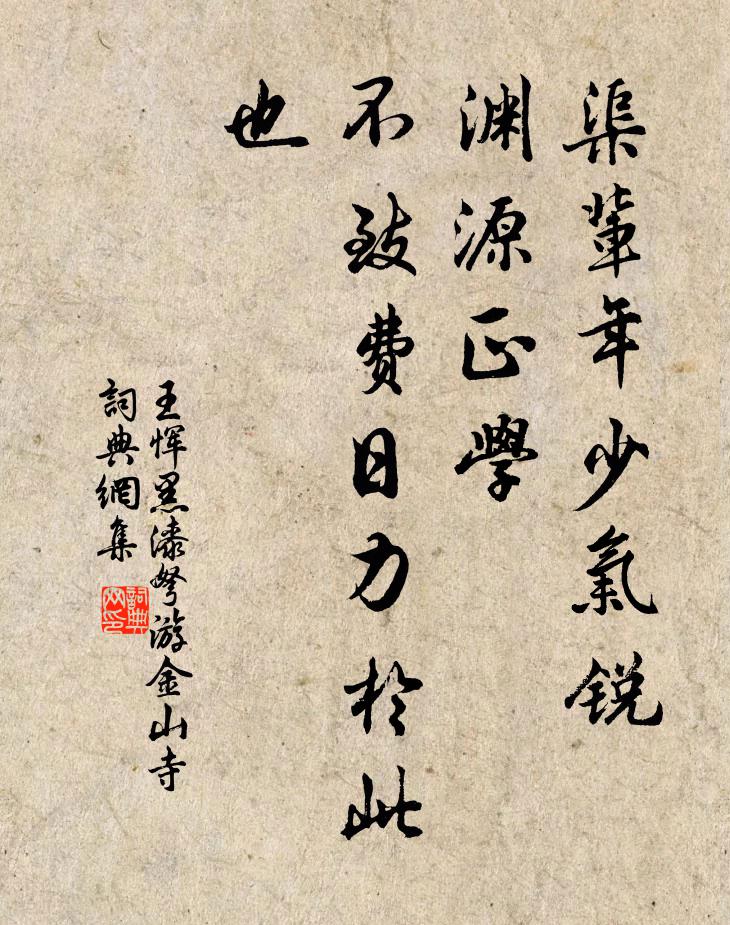 渠輩年少氣銳
渊源正學
不致費日力於此
也
王惲黑漆弩游金山寺
詞典網集
詞典网印